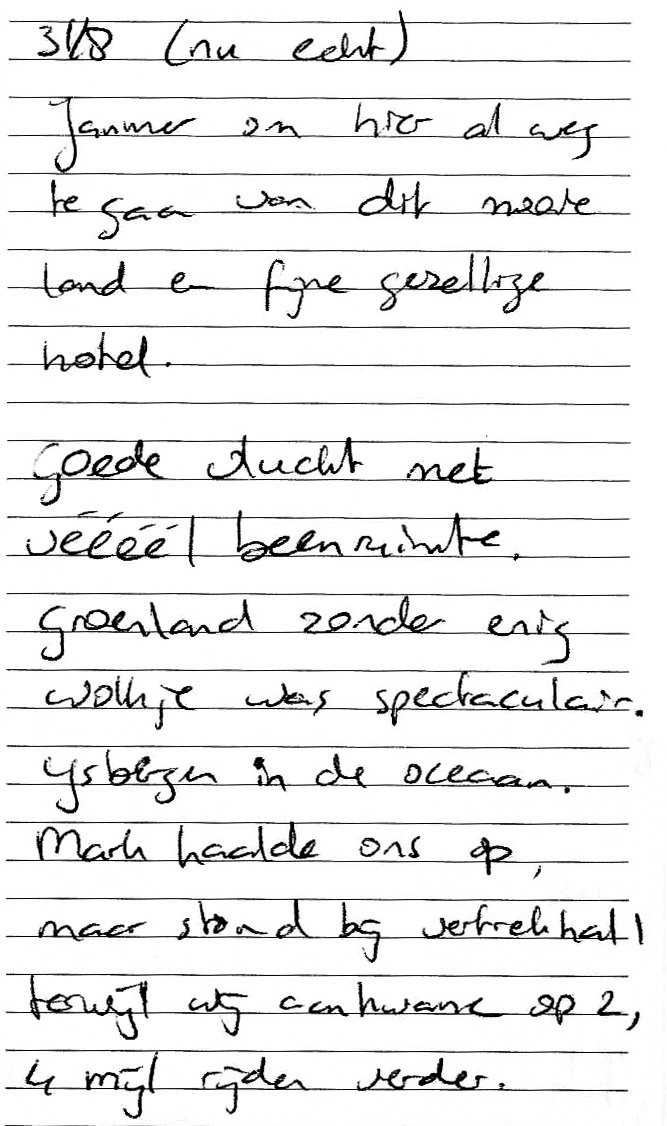 31/8 (nu echt)
Jammer om hier al weg
te gaan van dit mooie
land en fijne gezellige
hotel.
Goede vlucht met
véééél beenruimte.
Groenland zonder enig
wolkje was spectaculair.
Ijsbergen in de oceaan.
Mark haalde ons op,
maar stond bij vertrekhal 1
terwijl wij aankwamen op 2,
4 mijl rijden verder.